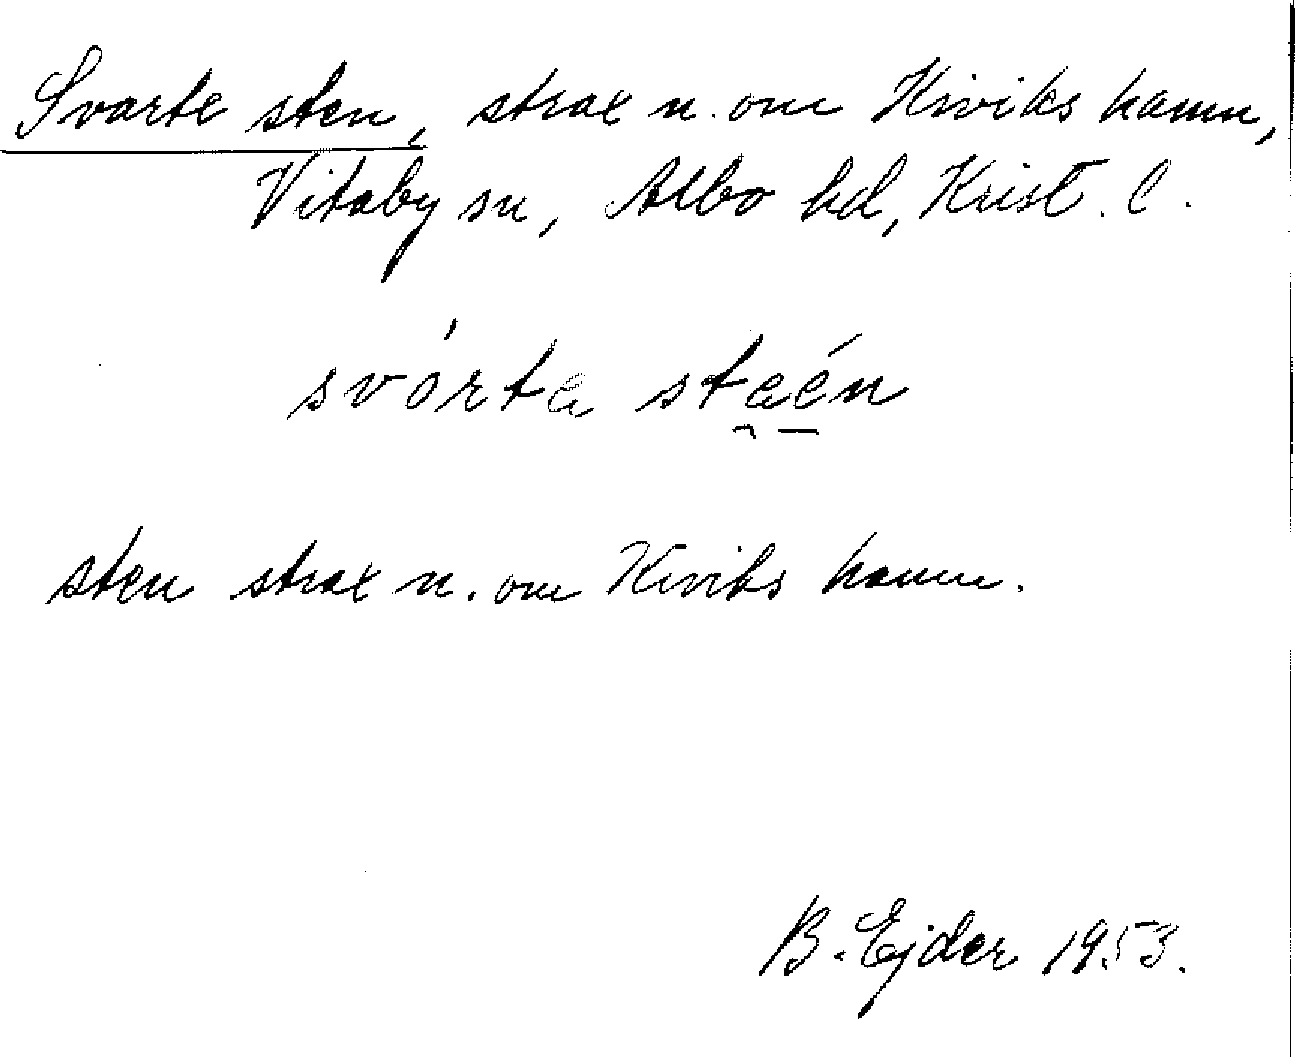 Svarte sten, strax n. om Kiviks hamn,
Vitaby sn, Albo hd, Krist. l.
svórta staén
sten strax n. om Kiviks hamn.
B. Ejder 1953.